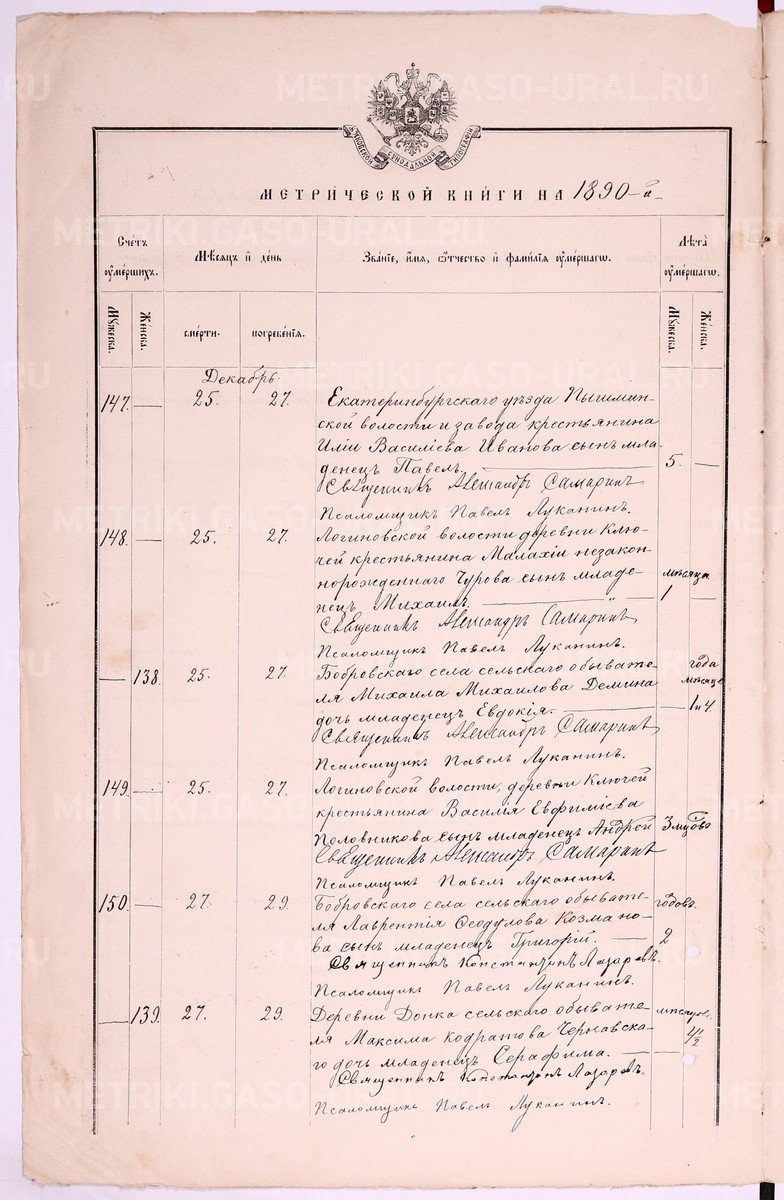 МОСКОВСКОЙ СУНОДАЛЬНОЙ ТИПОГРАФІИ
МЕТРИЧЕСКОЙ КНИГИ НА 1890-й
Счетъ оумершихъ.
Мѣсяцъ и день
Званіе, имя, отчество и фамилія оумершаго.
Лѣта оумершаго.
Мужеска.
Женска.
смерти.
погребенія.
Мужеска.
Женска.
Декабрь.
147. — 25. 27. Екатеринбургскаго уѣзда Пышмин-
ской волости и завода крестьянина
Иліи Василіева Иванова сынъ мла-
денецъ Павелъ. — 5. —
Священникъ Александръ Самаринъ
Псаломщикъ Павелъ Луканинъ.
148. — 25. 27. Логиновской волости деревни Клю-
чей крестьянина Малахіи незакон-
норожденнаго Чурова сынъ младе- мѣсяца
нецъ Михаилъ. — 1 —
Священникъ Александръ Самаринъ
Псаломщикъ Павелъ Луканинъ.
— 138. 25. 27. Бобровскаго села сельскаго обывате- года
ля Михаила Михаилова Демина мѣсяце
дочь младенецъ Евдокія. — 1 и 4.
Священникъ Александръ Самаринъ
Псаломщикъ Павелъ Луканинъ.
149. — 25. 27. Логиновской волости, деревни Ключей
крестьянина Василія Евфиміева
Половникова сынъ младенецъ Андрей 3 мѣсяцовъ
Священникъ Александръ Самаринъ
Псаломщикъ Павелъ Луканинъ.
150. — 27. 29. Бобровскаго села сельскаго обывате- годовъ.
ля Лаврентія Ѳеодулова Козмано-
ва сынъ младенецъ Григорій. — 2
Священникъ Константинъ Лазаревъ.
Псаломщикъ Павелъ Луканинъ.
— 139. 27. 29. Деревни Допка сельскаго обывате- мѣсяцов.
ля Максима Кодратова Чернавска- 4 1/2
го дочь младенецъ Серафима. —
Священникъ Константинъ Лазаревъ.
Псаломщикъ Павелъ Луканинъ.
METRIKI.GASO-URAL.RU